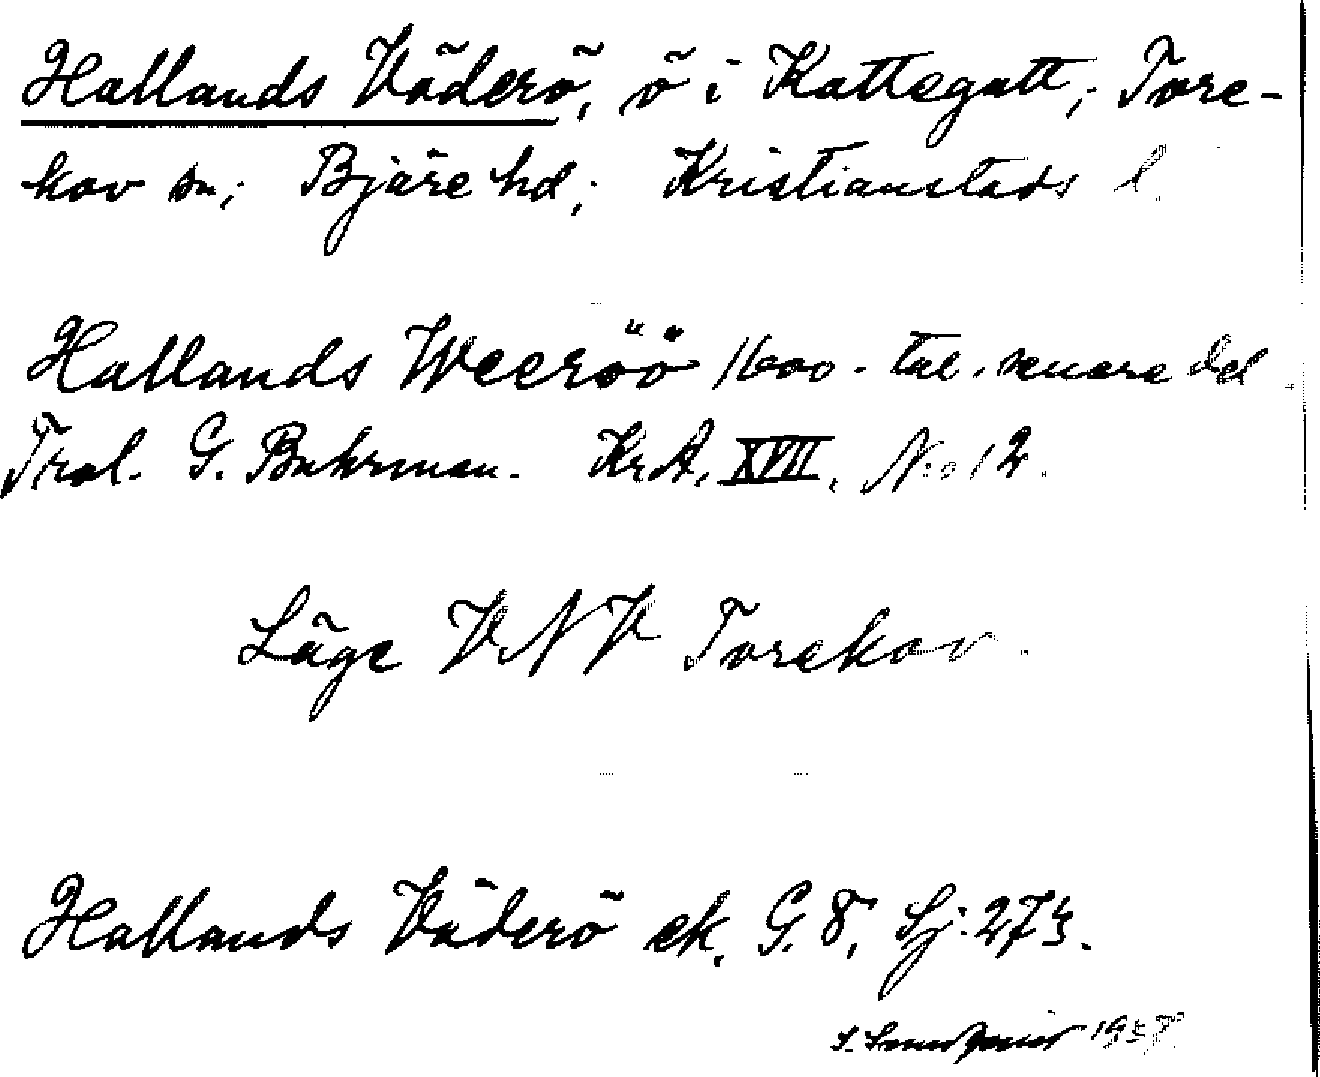 Hallands Väderö, ö i Kattegatt; Tore-
kov sn; Bjäre hd; Kristianstads l.
Hallands Weeröö 1600-tal. senare del.
Trol. G. Buhrman. KrA, XVII, No 12.
Läge VNV Torekov.
Hallands Väderö ek. G. 8, Sj: 273.